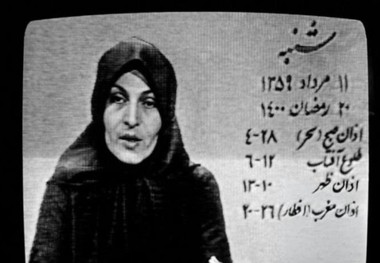 شنبه
۱۱ مرداد ۱۳۵۹
۲۰ رمضان ۱۴۰۰
اذان صبح (سحر) ۴-۲۸
طلوع آفتاب ۶-۱۲
اذان ظهر ۱۳-۱۰
اذان مغرب (افطار) ۲۰-۲۶